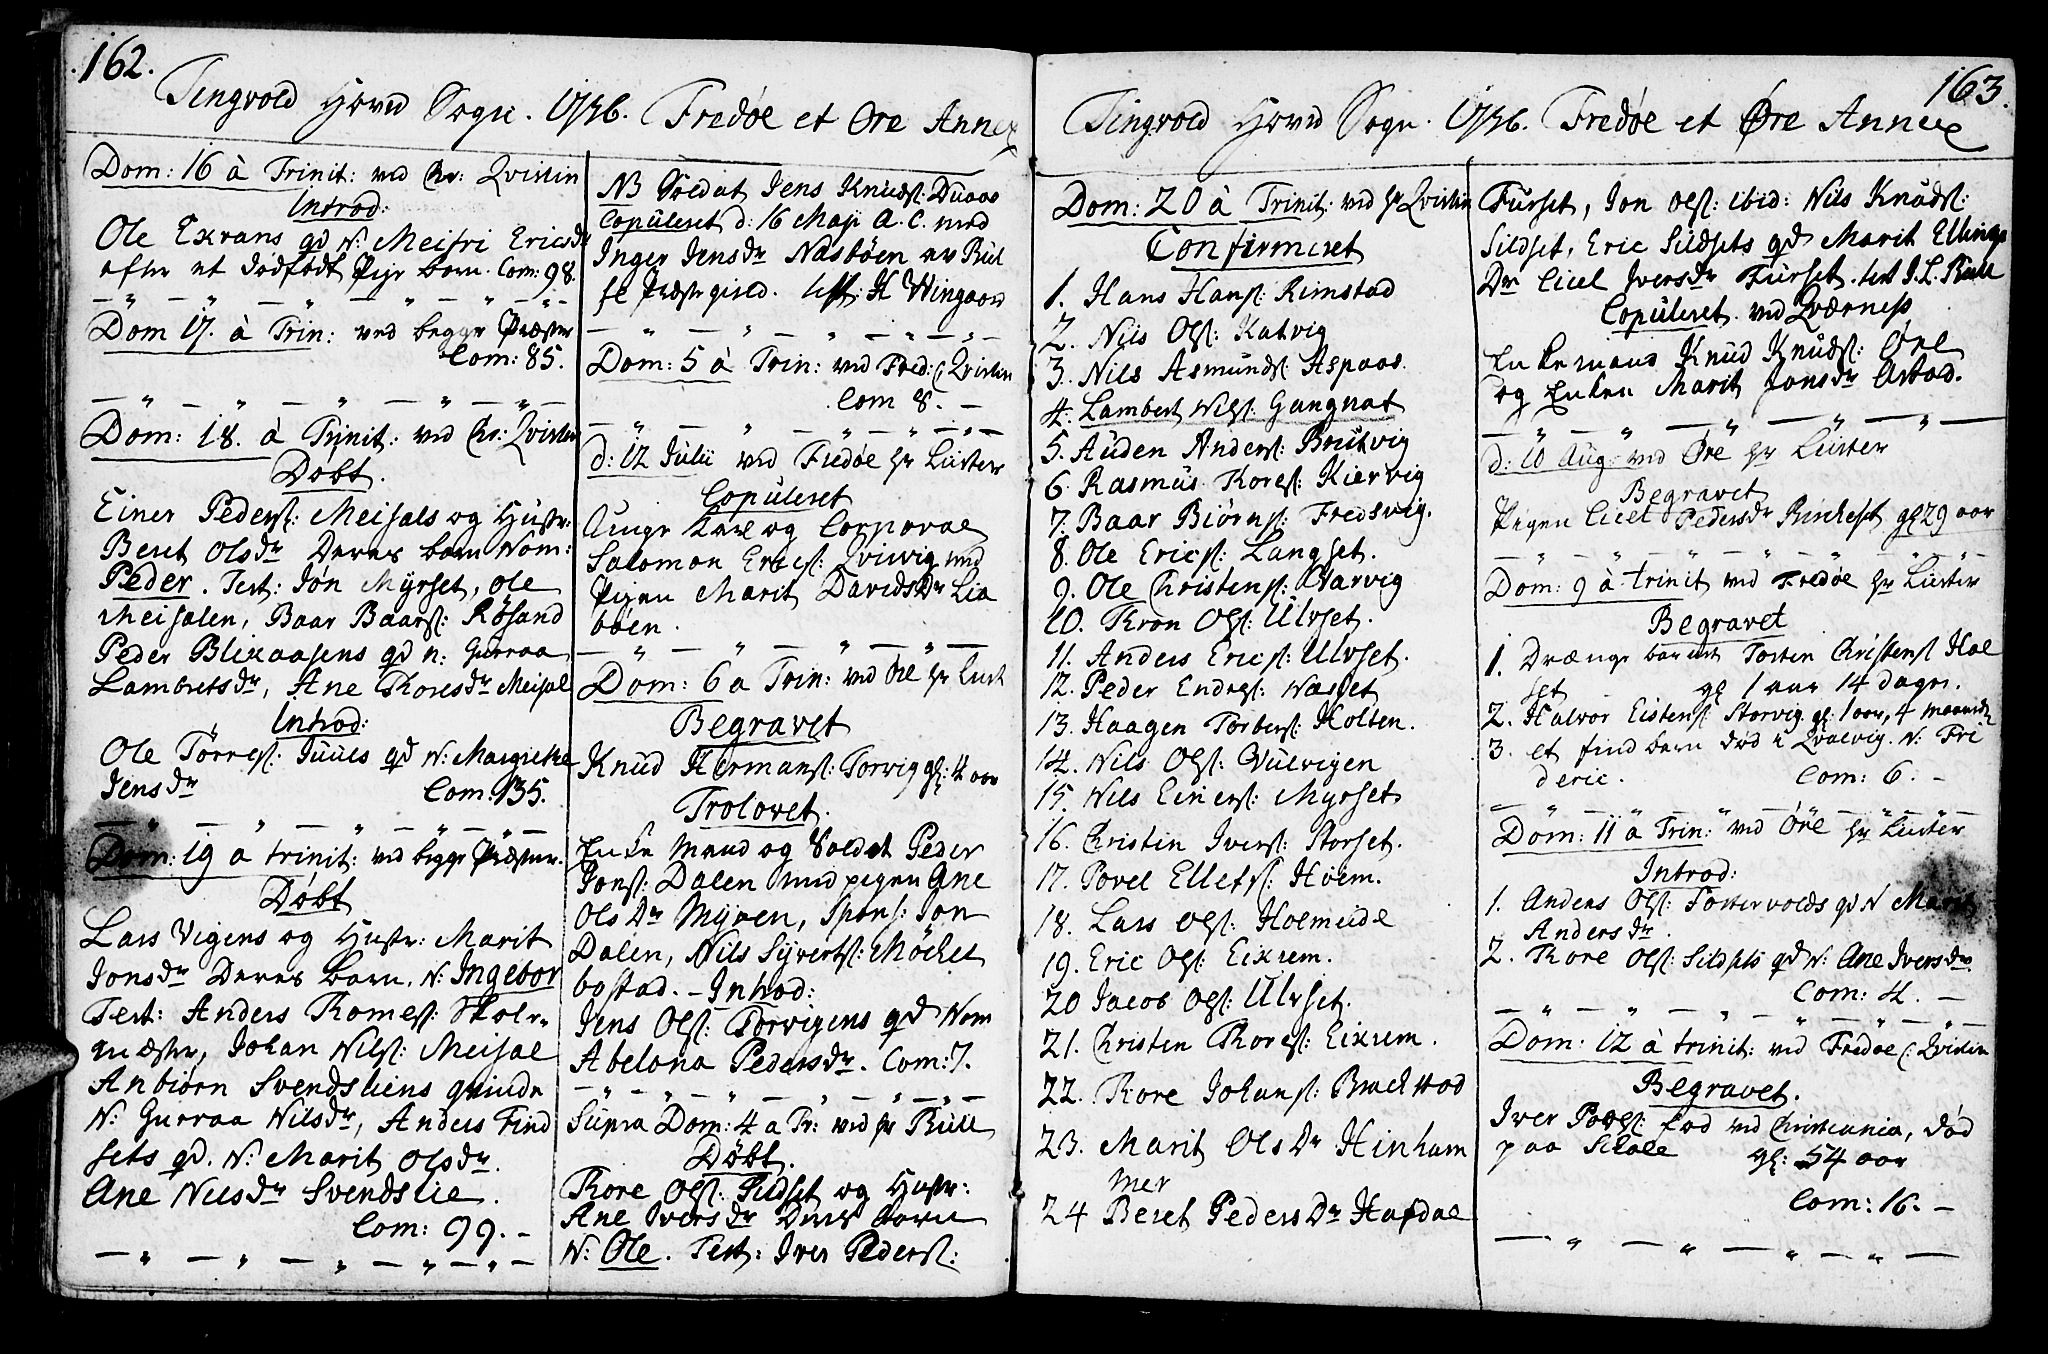 162.
Tingvold Hoved Sogn. 1756. Fredøe et Øre Annex
Dom: 16 à Trinit: ved Chr: Qvistin
Introd:
Ole Exrans qd N: Meisri Ericsdr
efter et dødfødt Pige barn. Com: 98.
Dom 17. à Trin: ved begge Præster
Com: 85.
Dom: 18. à Trinit: ved Chr: Qvistin
Døbt.
Einer Peders: Meisals og Hustr:
Beret Olsdr Deres barn Nom:
Peder. Test: Jøn Myrset, Ole
Meisalen, Baar Baars: Røsand
Peder Blixaasens qd n: Gurraa
Lambretsdr, Ane Thoresdr Meisal
Introd:
Ole Tørres: Juuls qd N: Margrethe
Jensdr Com: 135.
Dom: 19 a trinit: ved begge Præster.
Døbt
Lars Vigens og Hustr: Marit
Jonsdr Deres barn. N: Ingebor
Test: Anders Romes: Skole-
mester, Johan Nils: Meisal
Anbiørn Svendsliens qvinde
N: Gurraa Nilsdr, Anders Find
sets qd. N: Marit Olsdr.
Ane Nilsdr Svendslie.
Com: 99. -
NB Soldat Jens Knuds: Duaas
Copuleret d: 16 Maji A. C. med
Inger Jensdr Nasbøen av Bul
se Præstegield. test: H Wingaard
Dom: 5 à Trin: ved Fred: C: Qvistin
Com 8. -
d: 12 Julii ved Fredøe hr Lüster
Copuleret
Unge Karl og Corporal
Salomon Erics: Qvisvig med
Pigen Marit DavidsDr Lia
bøen.
Dom: 6 a Trin: ved Øre hr Lust
Begravet
Knud Hermans: Torvig gl: 4 aar
Trolovet.
Enke Mand og Soldat Peder
Jons: Dalen med pigen Ane
OlsDr Myren, Spons: Jon
Dalen, Nils Syverts: Møchel
bostad. - Introd:
Jens Ols: Torvigens qd Nom
Abelona Pedersdr. Com: 7.
Supra Dom: 4 a Tr: ved hr Bull
Døbt.
Thore Ols: Sildset og Hustr:
Ane Iversdr Deres barn
N: Ole. Test: Iver Peders:
163.
Tingvold Hoved Sogn. 1756. Fredøe et Øre Annex
Dom: 20 à Trinit. ved hr Qvistin
Confirmeret
1. Hans Hans: Rimstad
2. Nils Ols: Katvig
3. Nils Asmunds: Aspaas.
4. Lambert Nils: Gangnat
5. Auden Anders: Brutvig
6. Rasmus Thores: Kiervig
7. Baar Biørns: Fredsvig.
8. Ole Erics: Langset.
9. Ole Christens: Harvig
10. Tron Ols: Ulvset.
11. Anders Erics: Ulvset.
12. Peder Endres: Nasset
13. Haagen Torbers: Holten.
14. Nils Ols: Vulvigen
15. Nils Einers: Myrset
16. Christen Ivers: Storset.
17. Povel Ellefs: Hoem.
18. Lars Ols: Holmeide
19. Eric Ols: Eixrem.
20 Jacob Ols: Ulvset.
21. Christen Thores: Eixrem.
22. Thore Johans: Brachstad
23. Marit OlsDr Hinham
mer
24 Beret PedersDr Hafdal
Furset, Jon Ols: ibid: Nils Knuds:
Sildset, Eric Sildsets qd Marit Ellings
Dr Cicel Iversdr Furset. test J. L. Bull
Copuleret. ved Qværness
Enkemand Knud Knuds: Øre
og Enken Marit Jonsdr Astad.
d: 10 Aug: ved Øre hr Lüster
Begravet
Pigen Cicel Pedersdr Rinhest gl 29 aar
Dom: 9 à trinit ved Fredøe hr Lüster
Begravet
1. Drænge barnet Torsten Christens: Hal
set gl 1 aar 14 dage.
2. Halvor Eistens: Storvig gl: 1 aar, 4 maaneder
3. et findbarn død i Qvalvig. N: Fri
deric. Com: 6. -
Dom: 11 a Trin: ved Øre hr Lüster
Introd:
1. Anders Ols: Torvolds qd N Marit
Andersdr.
2. Thore Ols: Sildsets qd N: Ane Iversdr.
Com: 4. -
Dom: 12 à trinit: ved Fredøe C: Qvistin
Begravet.
Iver Povels: fød ved Christiania, død
paa Silale gl: 54 aar
Com: 16. -